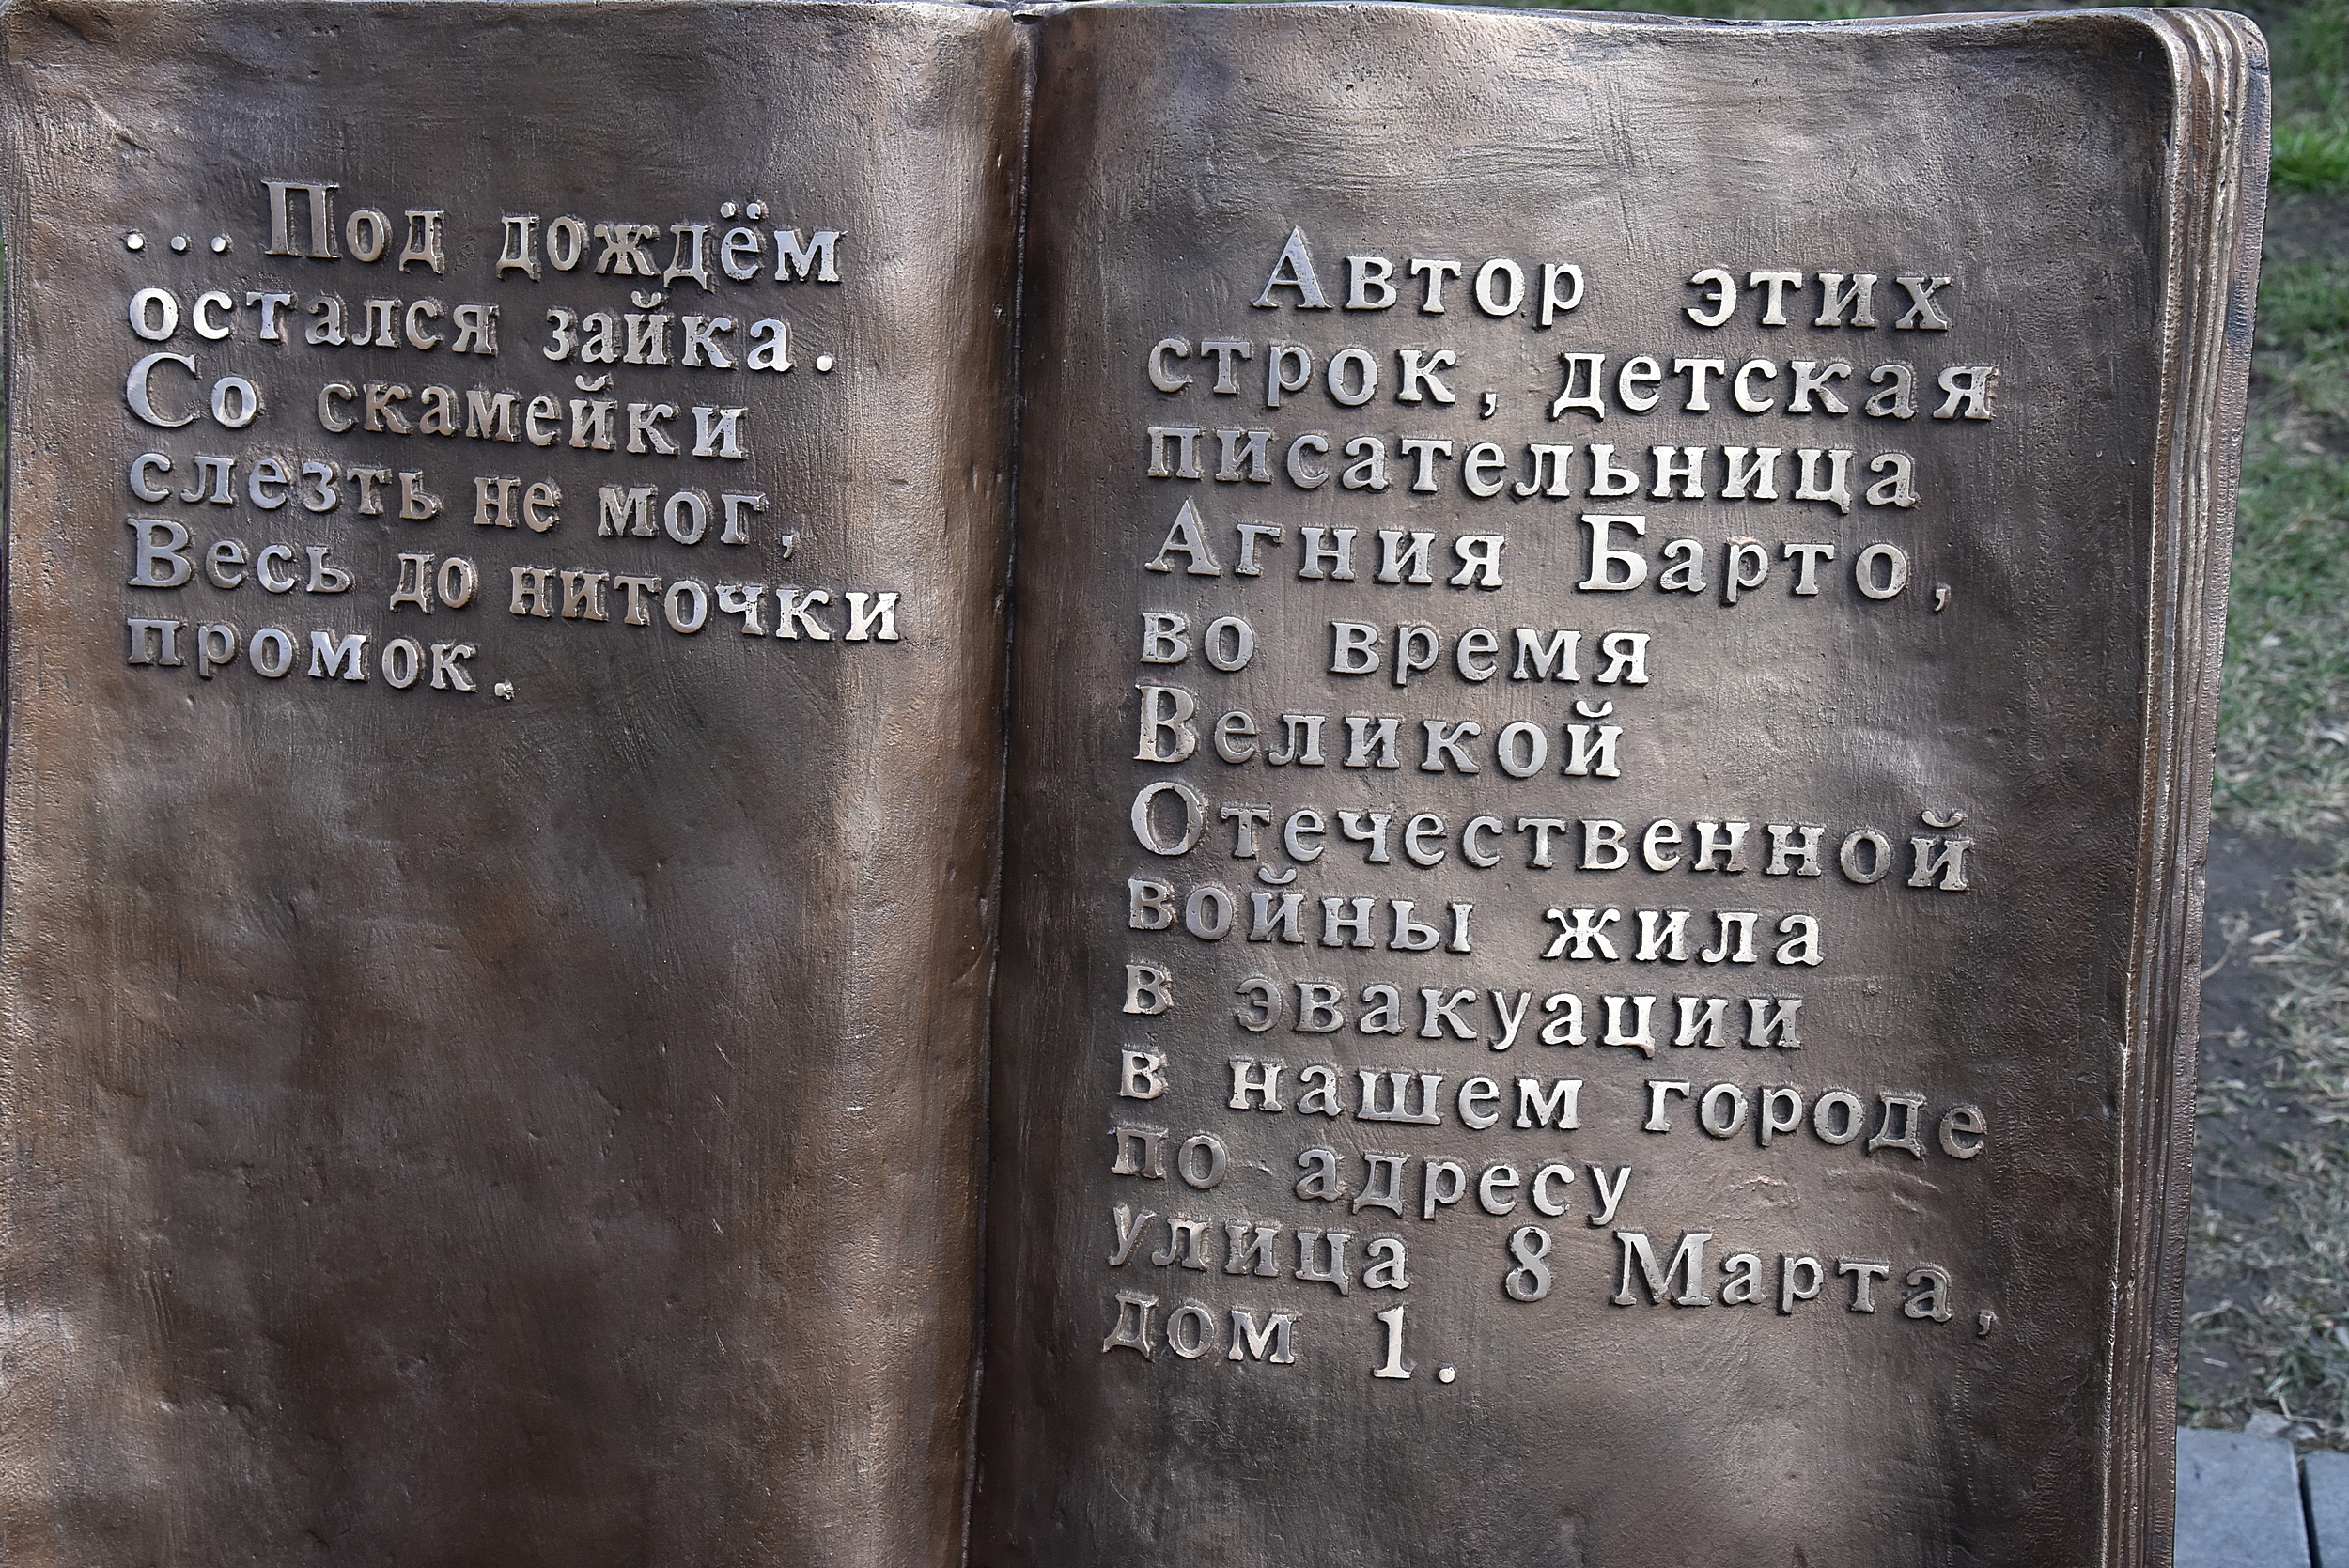 ...Под дождём
остался зайка.
Со скамейки
слезть не мог,
Весь до ниточки
промок.
Автор этих
строк, детская
писательница
Агния Барто,
во время
Великой
Отечественной
войны жила
в эвакуации
в нашем городе
по адресу
улица 8 Марта,
дом 1.